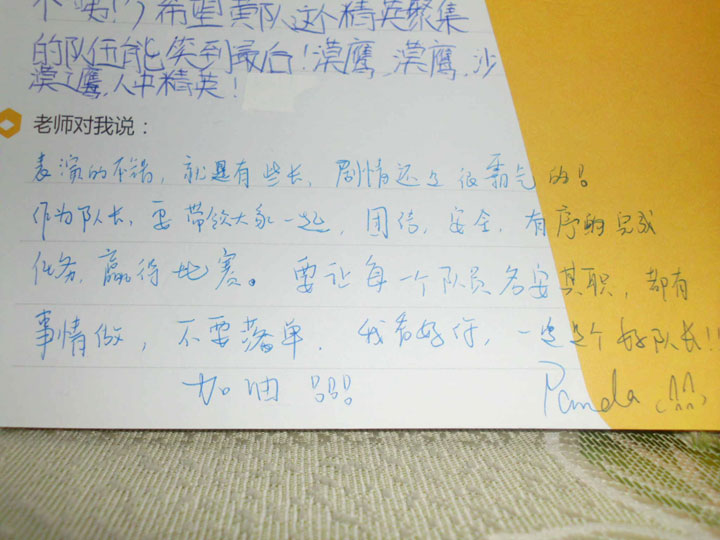 希望黄队这个精英聚集
的队伍能笑到最后!漠鹰,漠鹰,沙
漠之鹰,人中精英!
老师对我说:
表演的不错,就是有些长,剧情还是很霸气的!
作为队长,要带领大家一起,团结,安全,有序的完成
任务,赢得比赛。要让每一个队员各安其职,都有
事情做,不要落单,我看好你,一定是个好队长!!
加油!!!
Panda